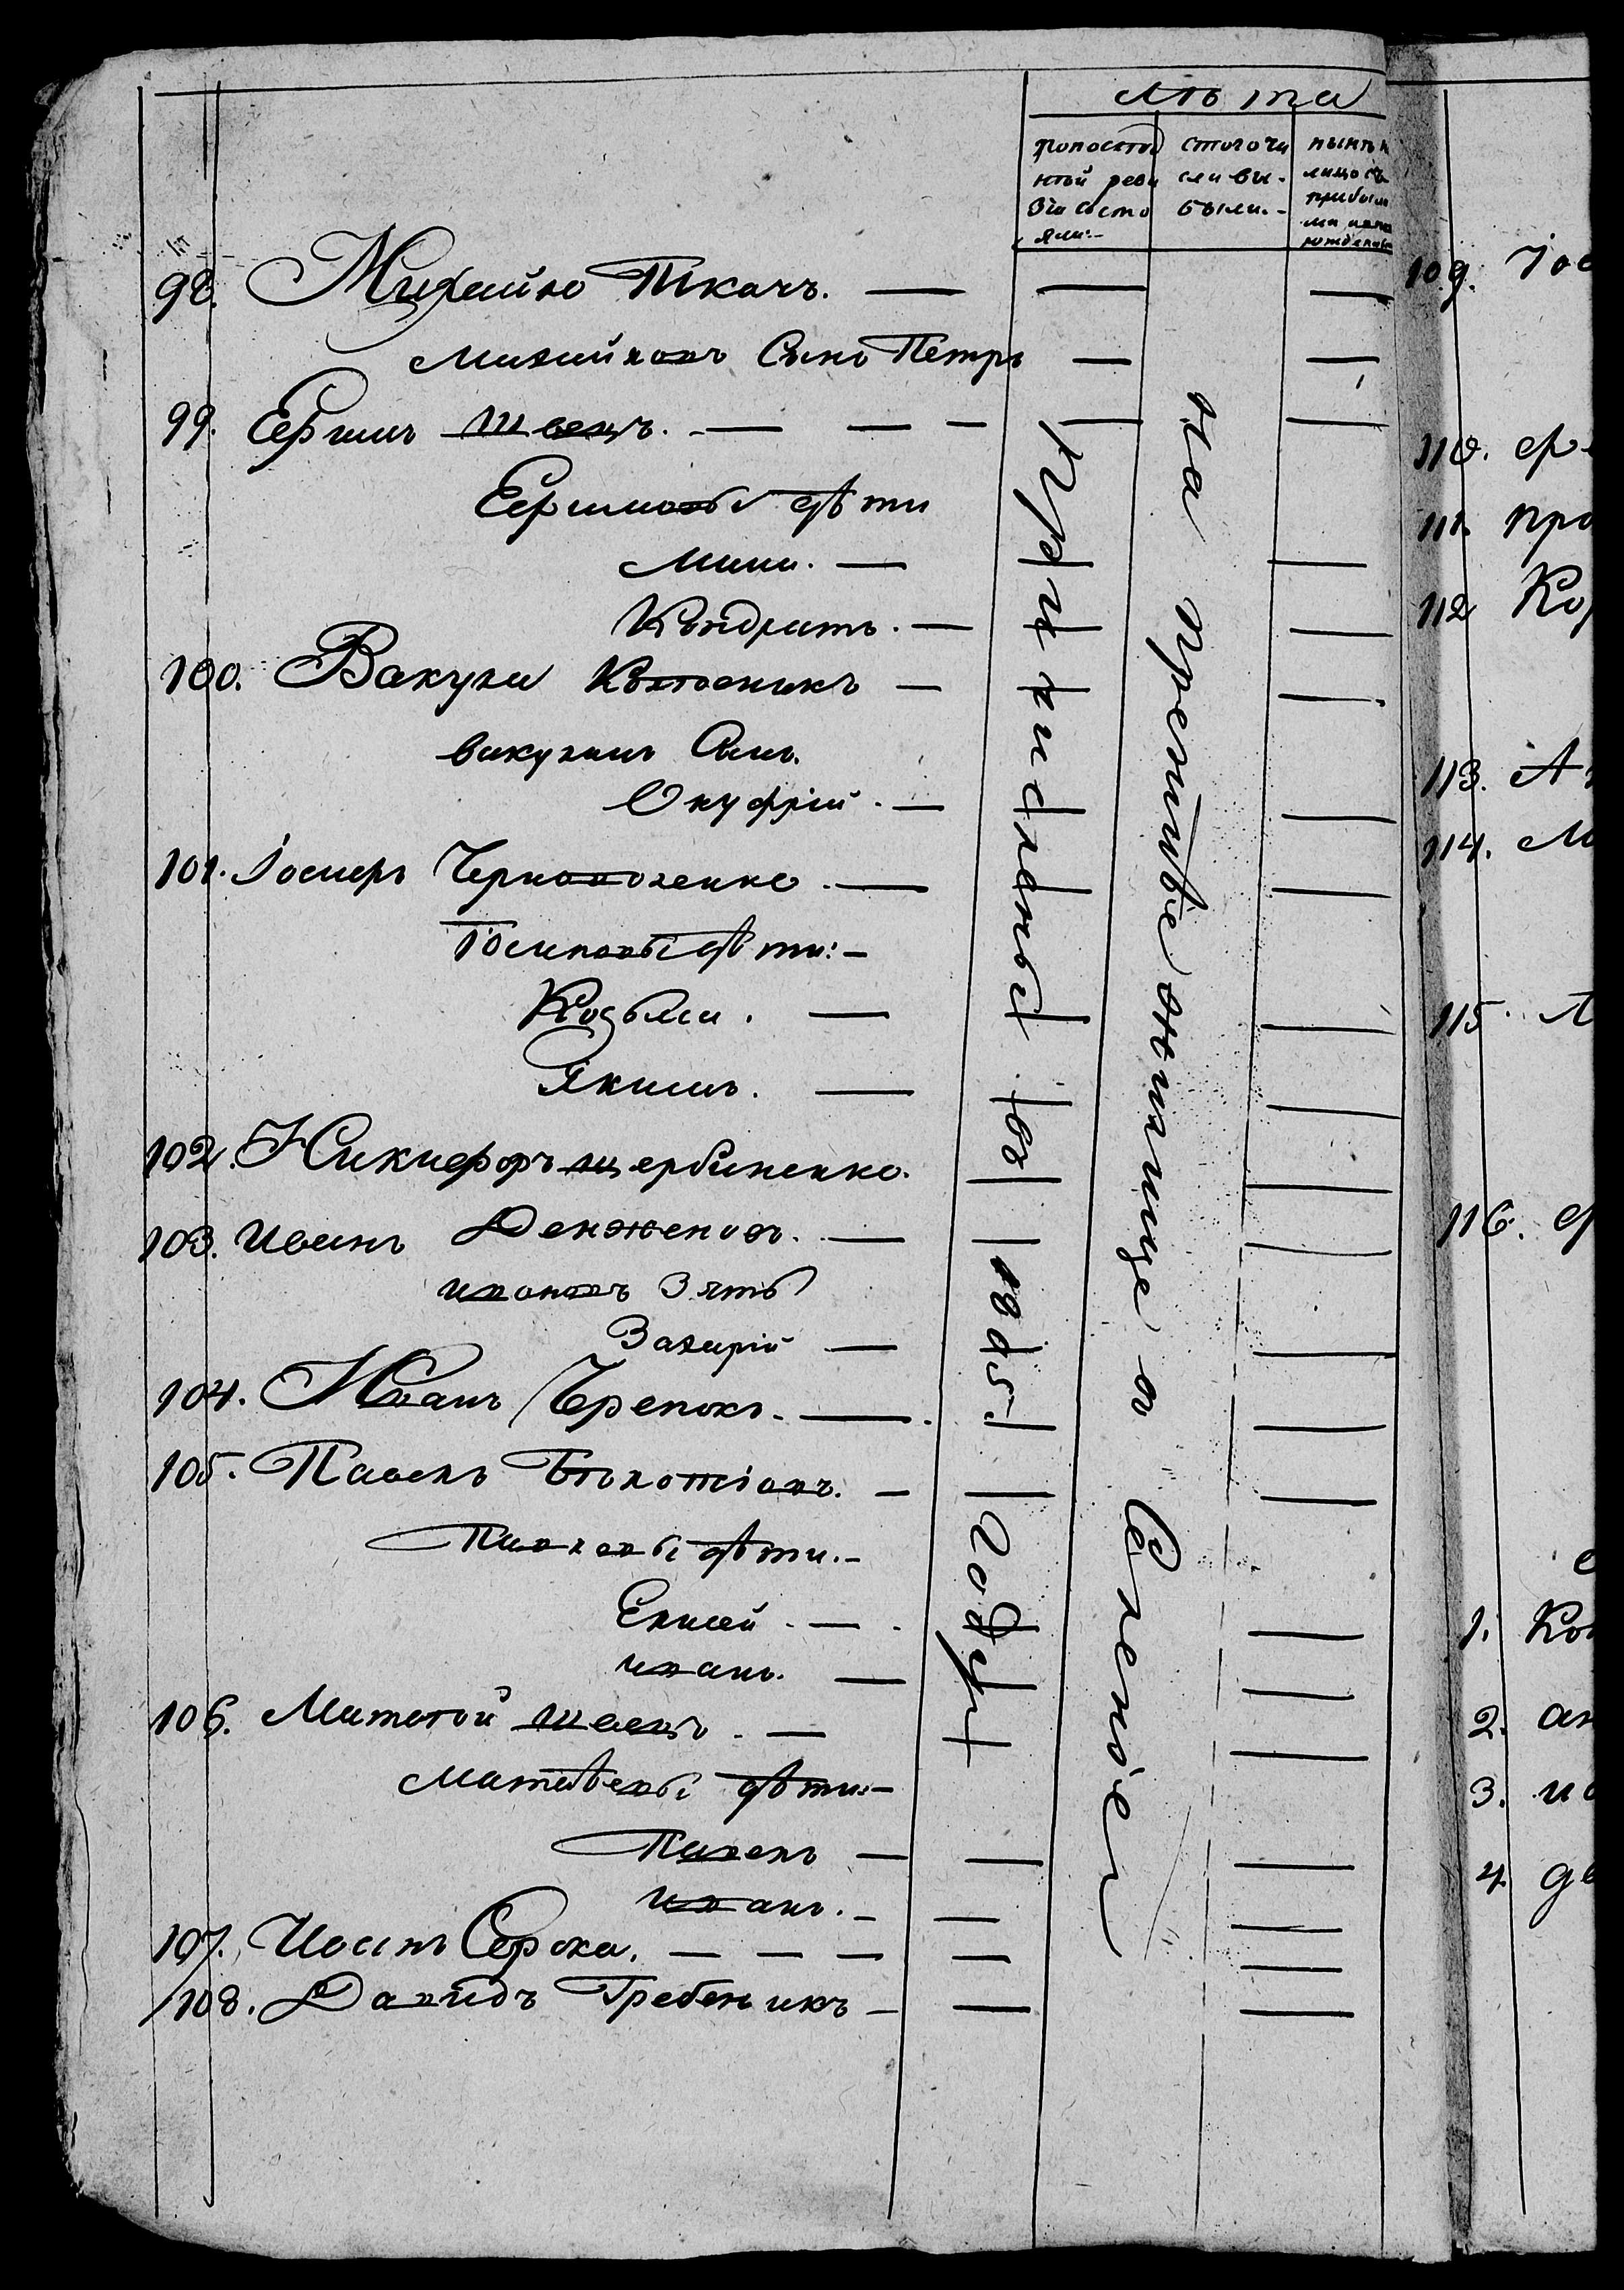 Лѣта
по послѣд
ней реви
зіи состо
яли:-
с того чи
сла вы-
были.-
нынѣ на
лицо съ
прибыл
ми и но
рожденны
98. Михайло Ткачъ. —
Михайловъ Сынъ Петръ
99. Ефимъ Швецъ. —
Ефимовы дѣти
Мина. —
Кондратъ. —
100. Вакула Котовникъ —
Вакулинъ Сынъ.
Онуфрій. —
101. Іосипъ Черноволенко. —
Іосиповы дѣти:-
Козьма. —
Якимъ. —
102. Никифоръ Щербиненко.
103. Иванъ Денженовъ. —
Ивановъ Зять
Захарій —
104. Иванъ Черепокъ. —
105. Павелъ Бѣлотіовъ. —
Павловы дѣти.-
Елисей. —
Иванъ. —
106. Матвѣй Швецъ. —
Матвѣевы дѣти:-
Павелъ —
Иванъ. —
107. Иванъ Сорока. — — —
108. Давидъ Гребеникъ —
Причислены въ 1805 Году
на жителнице и Селеніе
109. Іос
110.
111. Про
112 Ко
113. А
114. М
115. А
116.
1. Ко
2. ан
3. и
4. д